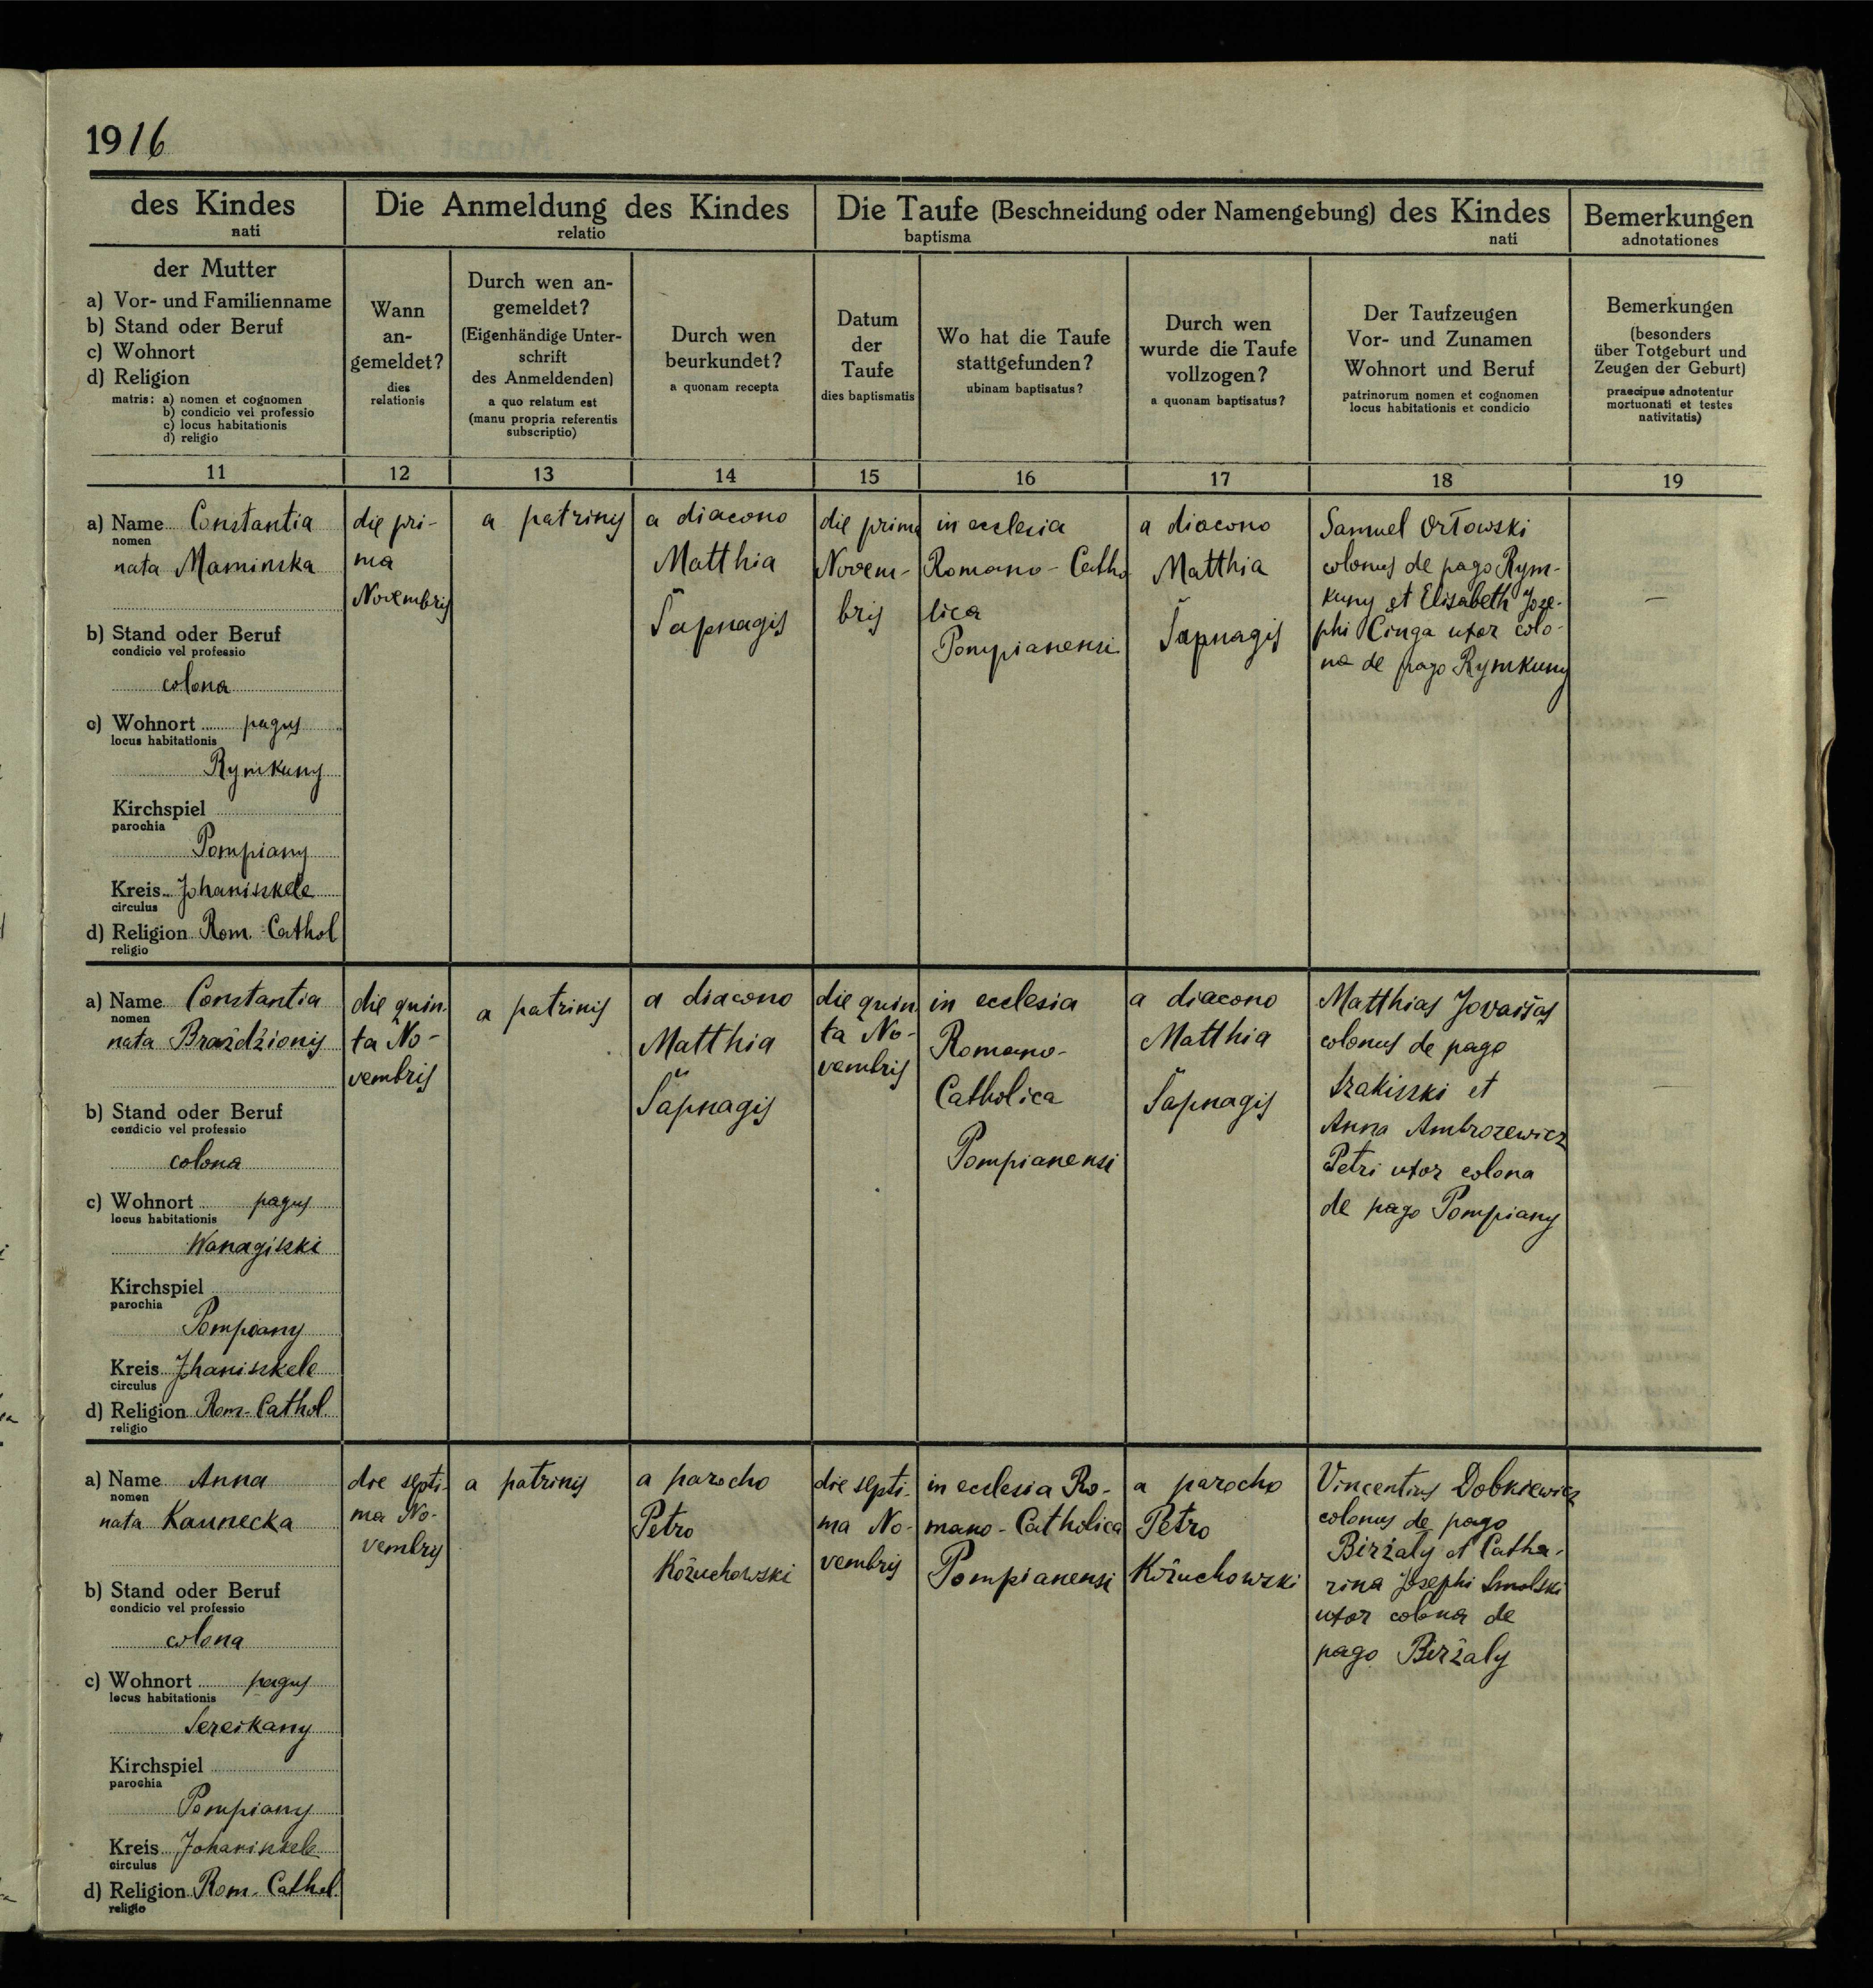 1916
des Kindes
nati
Die Anmeldung des Kindes
relatio
Die Taufe (Beschneidung oder Namengebung) des Kindes
baptisma nati
Bemerkungen
adnotationes
der Mutter
a) Vor- und Familienname
b) Stand oder Beruf
c) Wohnort
d) Religion
matris: a) nomen et cognomen
b) condicio vel professio
c) locus habitationis
d) religio
Wann
an-
gemeldet?
dies
relationis
Durch wen an-
gemeldet?
(Eigenhändige Unter-
schrift
des Anmeldenden)
a quo relatum est
(manu propria referentis
subscriptio)
Durch wen
beurkundet?
a quonam recepta
Datum
der
Taufe
dies baptismatis
Wo hat die Taufe
stattgefunden?
ubinam baptisatus?
Durch wen
wurde die Taufe
vollzogen?
a quonam baptisatus?
Der Taufzeugen
Vor- und Zunamen
Wohnort und Beruf
patrinorum nomen et cognomen
locus habitationis et condicio
Bemerkungen
(besonders
über Totgeburt und
Zeugen der Geburt)
praecipue adnotentur
mortuonati et testes
nativitatis)
11 12 13 14 15 16 17 18 19
a) Name Constantia
nomen
nata Maminska
b) Stand oder Beruf
condicio vel professio
colona
c) Wohnort pagus
locus habitationis
Rymkuny
Kirchspiel
parochia
Pompiany
Kreis Johaniszkele
circulus
d) Religion Rom. Cathol
religio
die pri-
ma
Novembris
a patrinis
a diacono
Matthia
Šapnagis
die prima
Novem-
bris
in ecclesia
Romano-Catho
lica
Pompianensi
a diacono
Matthia
Šapnagis
Samuel Orłowski
colonus de pago Rym-
kuny et Elisabeth Joze-
phi Cinga uxor colo-
na de pago Rymkuny
—
a) Name Constantia
nomen
nata Braždžionis
b) Stand oder Beruf
condicio vel professio
colona
c) Wohnort pagus
locus habitationis
Wanagiszki
Kirchspiel
parochia
Pompiany
Kreis Jhaniszkele
circulus
d) Religion Rom-Cathol.
religio
die quin-
ta No-
vembris
a patrinis
a diacono
Matthia
Šapnagis
die quin
ta No-
vembris
in ecclesia
Romano-
Catholica
Pompianensi
a diacono
Matthia
Šapnagis
Matthias Jovaišas
colonus de pago
Szakiszki et
Anna Ambrozewicz
Petri uxor colona
de pago Pompiany
—
a) Name Anna
nomen
nata Kaunecka
b) Stand oder Beruf
condicio vel professio
colona
c) Wohnort pagus
locus habitationis
Sereikany
Kirchspiel
parochia
Pompiany
Kreis Johaniszkele
circulus
d) Religion Rom. Cathol.
religio
die septi-
ma No-
vembris
a patrinis
a parocho
Petro
Kožuchowski
die septi-
ma No-
vembris
in ecclesia Ro-
mano-Catholica
Pompianensi
a parocho
Petro
Kožuchowski
Vincentius Dobkiewicz
colonus de pago
Birżaly et Catha-
rina Josephi Smolski
uxor colona de
pago Birżaly